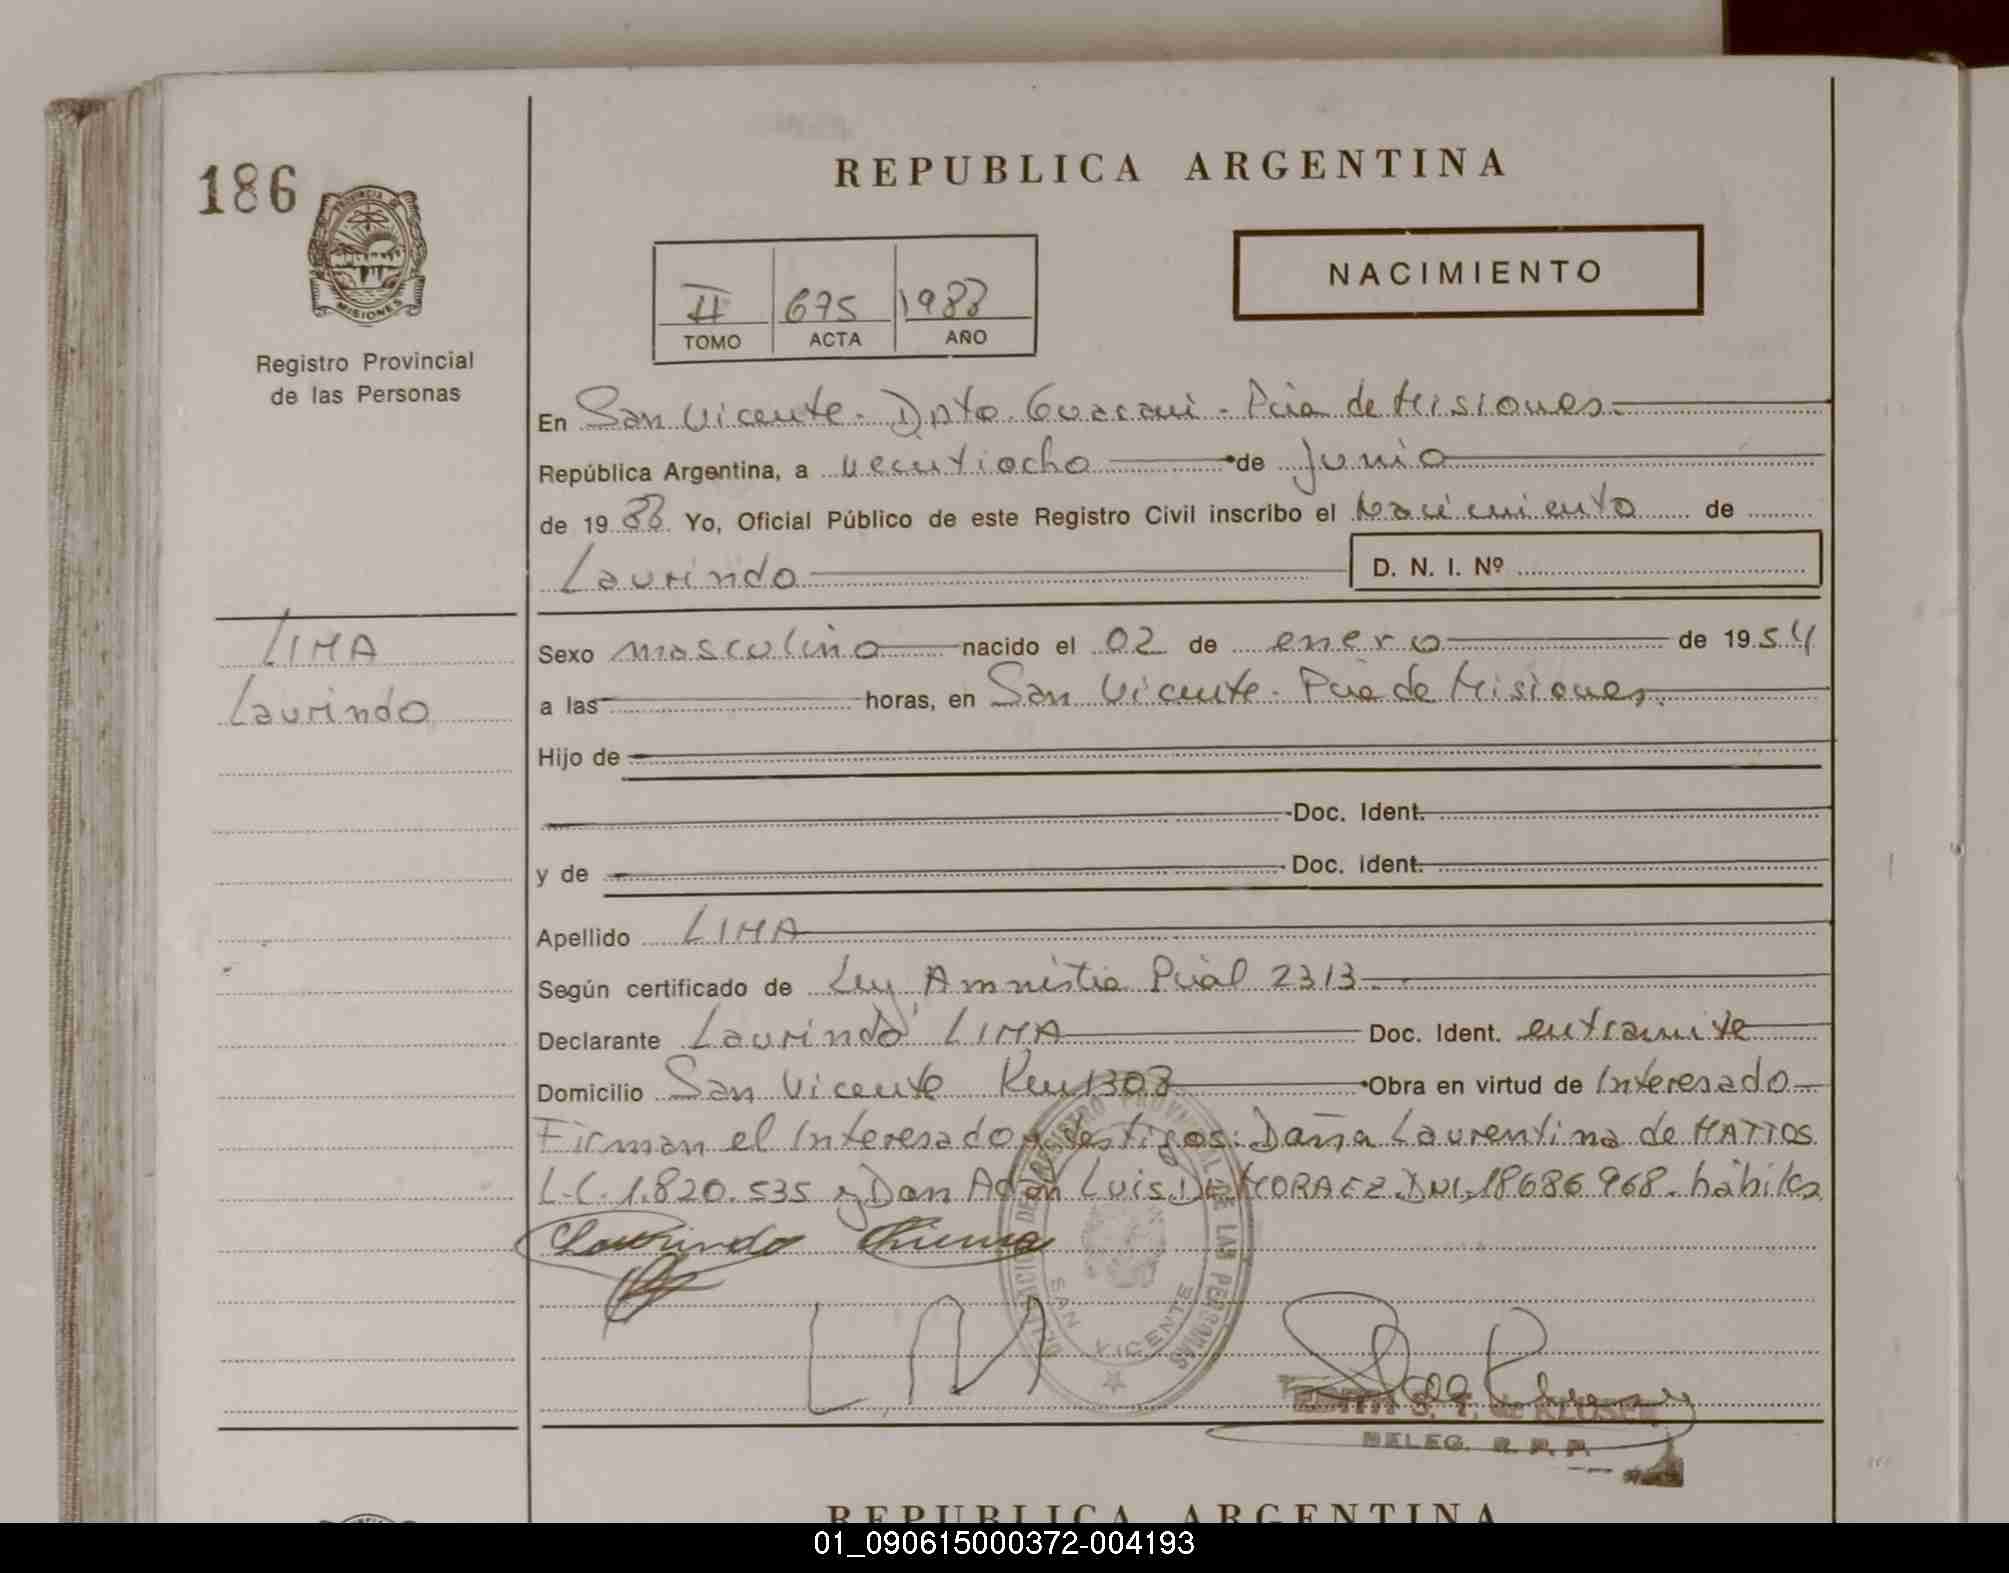 186
PROVINCIA DE
MISIONES
Registro Provincial
de las Personas
REPUBLICA ARGENTINA
NACIMIENTO
II 675 1988
TOMO ACTA AÑO
En San Vicente - Dpto. Guarani - Pcia de Misiones.
República Argentina, a veintiocho de Junio
de 19 88 Yo, Oficial Público de este Registro Civil inscribo el Nacimiento de
Laurindo D. N. I. Nº
LIMA
Laurindo
Sexo masculino nacido el 02 de enero de 19 54
a las horas, en San Vicente - Pcia de Misiones.
Hijo de
Doc. Ident.
y de Doc. Ident.
Apellido LIMA
Según certificado de Ley Amnistia Pcial 2313
Declarante Laurindo LIMA Doc. Ident. en tramite
Domicilio San Vicente Km 1308 Obra en virtud de Interesado
Firman el Interesado y testigos: Doña Laurentina de MATTOS
L.C. 1.820.535 y Don Adan Luis De MORAEZ DNI. 18686968. habiles
Laurindo
REGISTRO PROVINCIAL DE LAS PERSONAS
SAN VICENTE
S. T. de
DELEG. R. P. P.
REPUBLICA ARGENTINA
01_090615000372-004193